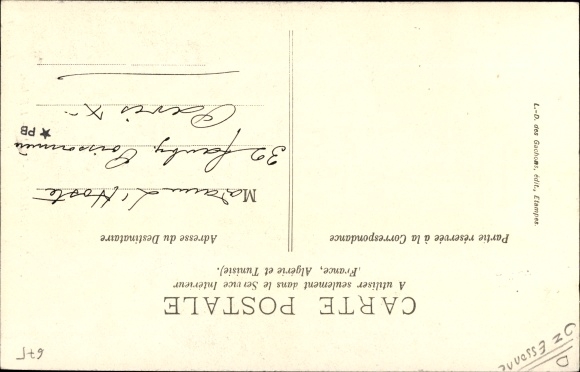 CARTE POSTALE
A utiliser seulement dans le Service Intérieur
(France, Algérie et Tunisie).
Partie réservée à la Correspondance
Adresse du Destinataire
Madame L'Hoste
32 faubg. Poissonnière
Paris X
★ PB
L.-D. des Gachons, édit., Etampes.
D
Essonne